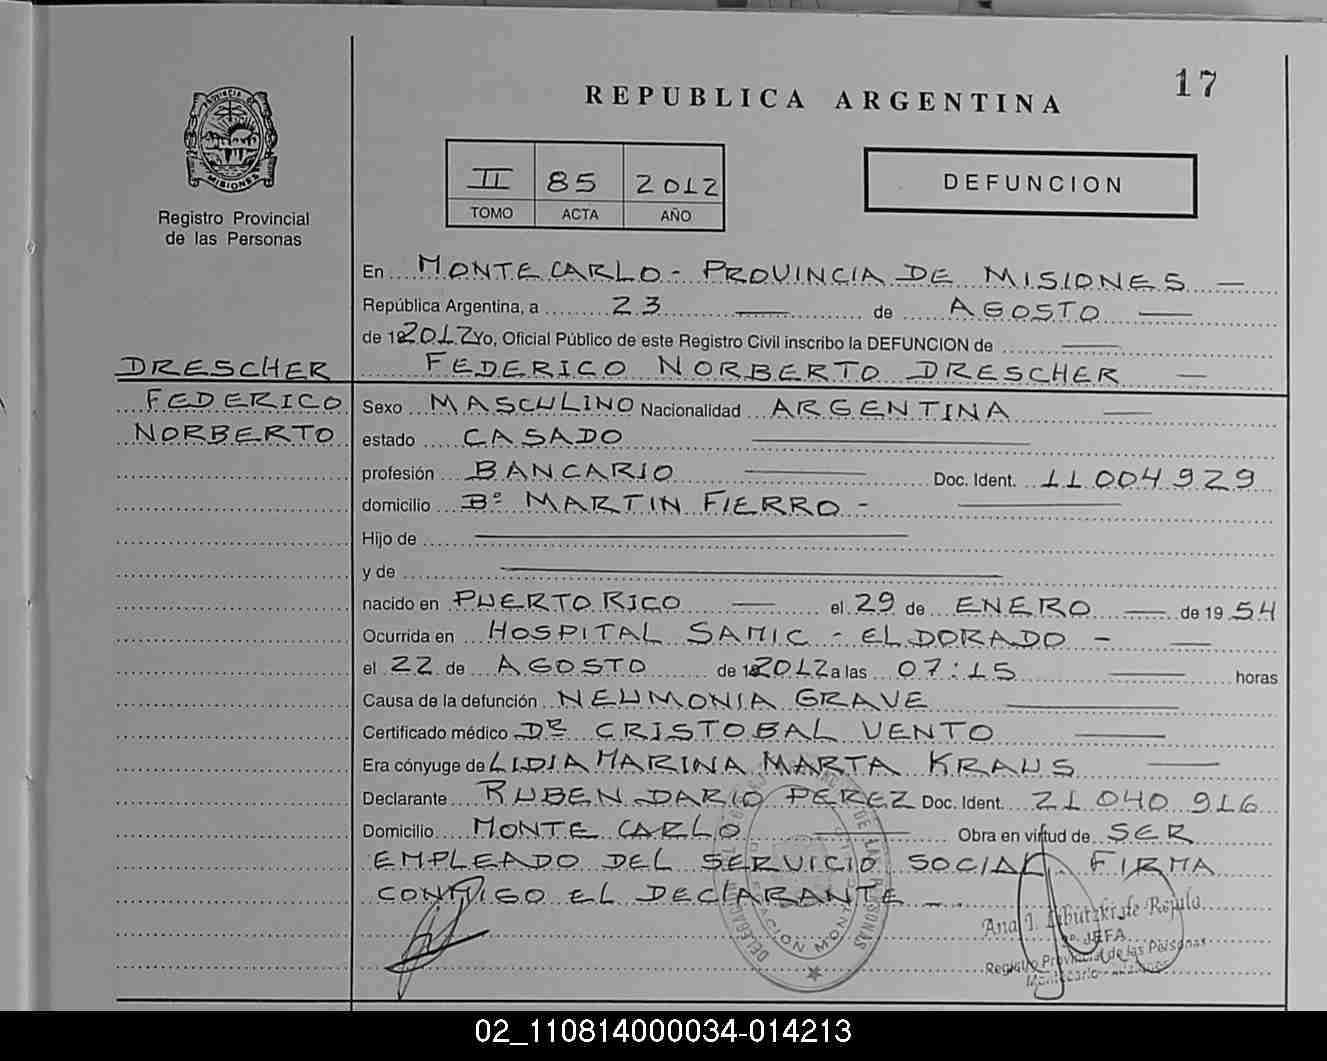 17
REPUBLICA ARGENTINA
PROVINCIA DE
MISIONES
Registro Provincial
de las Personas
II 85 2012
TOMO ACTA AÑO
DEFUNCION
En MONTECARLO - PROVINCIA DE MISIONES —
República Argentina, a 23 — de AGOSTO —
de 2012 Yo, Oficial Público de este Registro Civil inscribo la DEFUNCION de —
DRESCHER FEDERICO NORBERTO DRESCHER —
FEDERICO
NORBERTO
Sexo MASCULINO Nacionalidad ARGENTINA —
estado CASADO —
profesión BANCARIO — Doc. Ident. 11004929
domicilio Bº MARTIN FIERRO - —
Hijo de —
y de —
nacido en PUERTO RICO — el 29 de ENERO — de 1954
Ocurrida en HOSPITAL SAMIC - ELDORADO - —
el 22 de AGOSTO de 2012 a las 07:15 — horas
Causa de la defunción NEUMONIA GRAVE —
Certificado médico Dr CRISTOBAL VENTO —
Era cónyuge de LIDIA MARINA MARTA KRAUS —
Declarante RUBEN DARIO PEREZ Doc. Ident. 21 040 916
Domicilio MONTE CARLO — Obra en virtud de SER
EMPLEADO DEL SERVICIO SOCIAL. FIRMA
CONMIGO EL DECLARANTE - .
Ana I. de Rojula
JEFA
Registro Provincial de las Personas
Montecarlo - Misiones
02_110814000034-014213